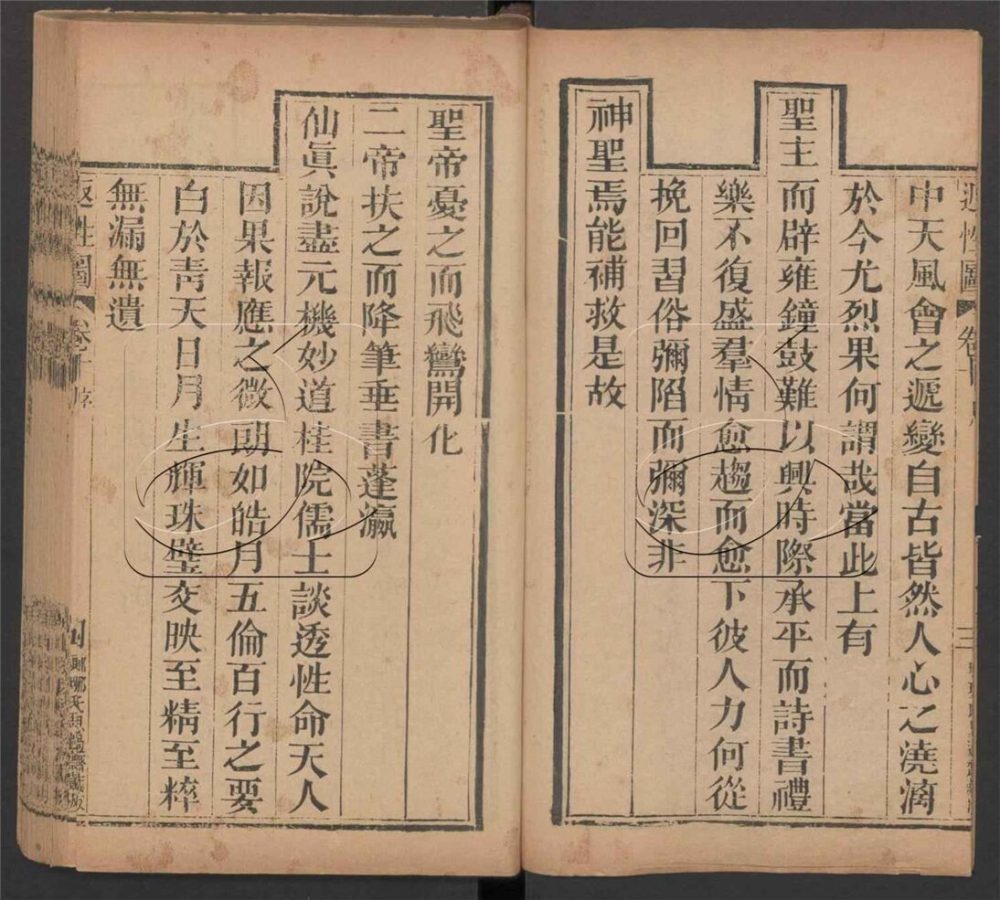 中天風會之遞變自古皆然人心之澆漓
於今尤烈果何謂哉當此上有
聖主而辟雍鐘鼓難以興時際承平而詩書禮
樂不復盛羣情愈趨而愈下彼人力何從
挽回習俗彌陷而彌深非
神聖焉能補救是故
聖帝憂之而飛鸞開化
二帝扶之而降筆垂書蓬瀛
仙眞說盡元機妙道桂院儒士談透性命天人
因果報應之微朗如皓月五倫百行之要
白於靑天日月生輝珠璧交映至精至粹
無漏無遺
返性圖 卷十 序